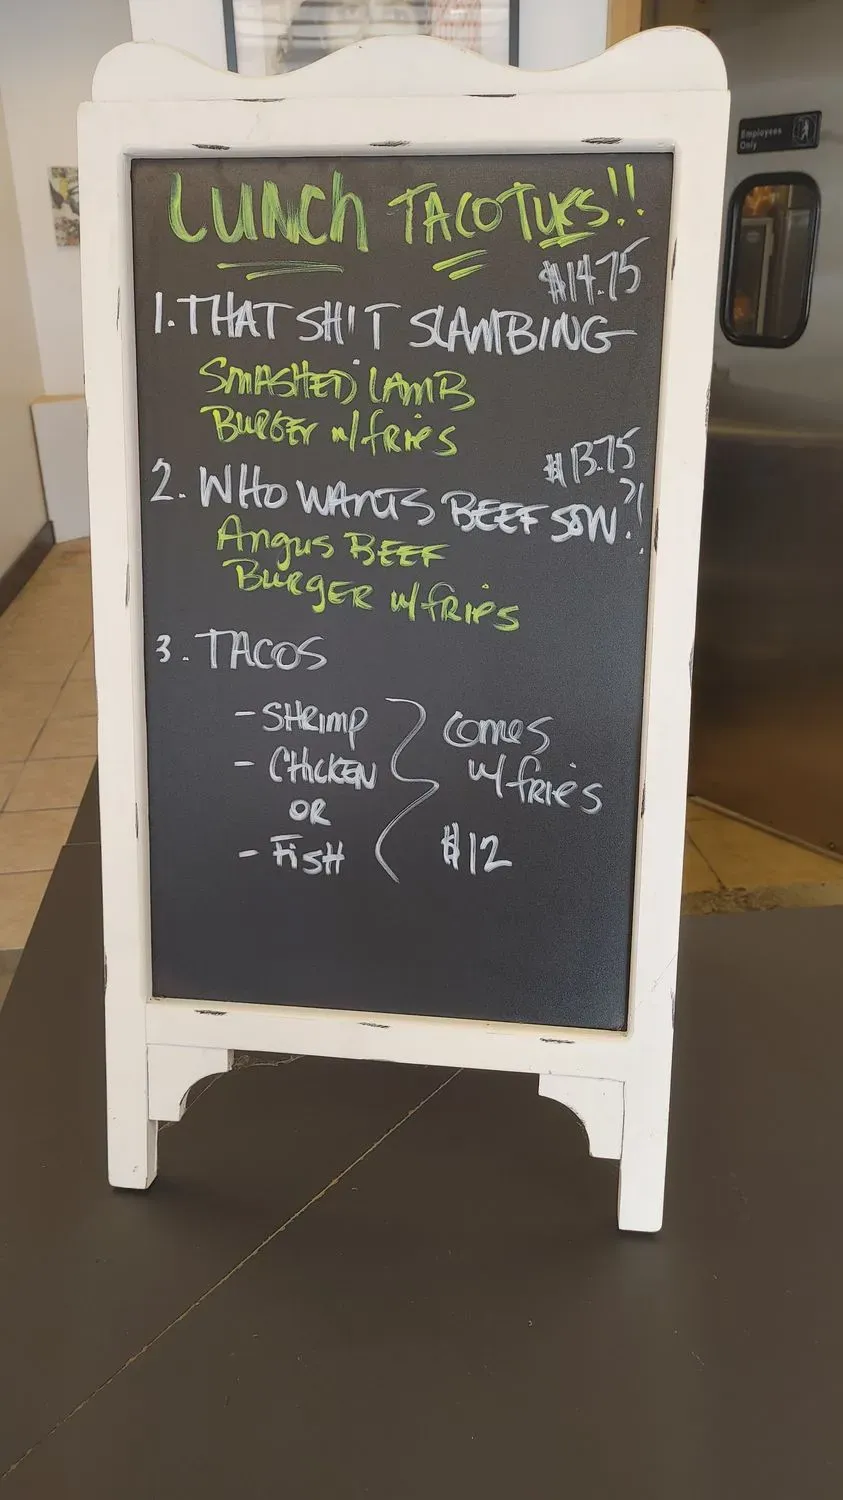 Employees
Only
LUNCH TACO TUES!!
$14.75
1. THAT SH!T SLAMBING
SMASHED LAMB
BURGER w/fries
$13.75
2. WHO WANTS BEEF SON?!
Angus BEEF
BURGER w/fries
3. TACOS
- SHRIMP
comes
- CHICKEN
w/fries
OR
- FISH
$12